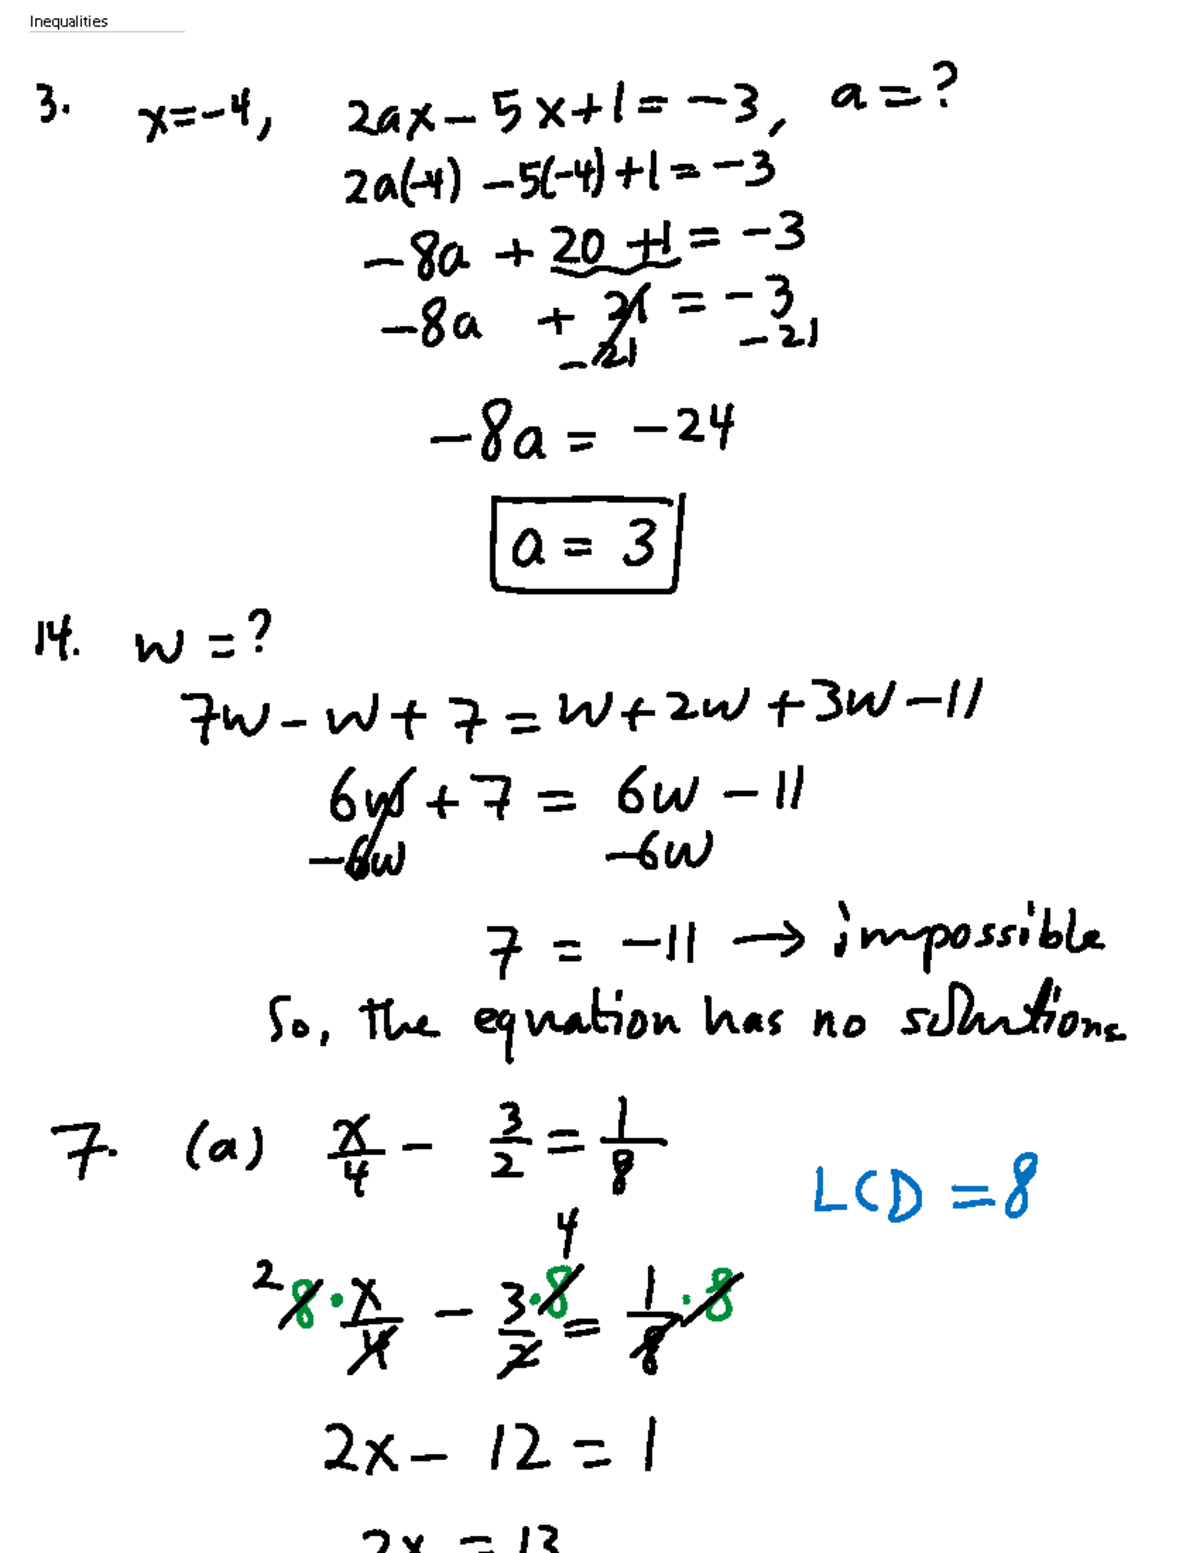 Inequalities
3. x=-4, 2ax - 5x+1 = -3, a=?
2a(-4) -5(-4)+1 = -3
-8a + 20 +1 = -3
-8a + 21 = -3
-21 -21
-8a = -24
a = 3
14. w = ?
7w - w + 7 = w + 2w + 3w - 11
6w + 7 = 6w - 11
-6w -6w
7 = -11 → impossible
So, the equation has no solutions
7. (a) x/4 - 3/2 = 1/8
LCD = 8
2 8·x/4 - 3·8/2 4 = 1/8·8
2x - 12 = 1
2x = 13